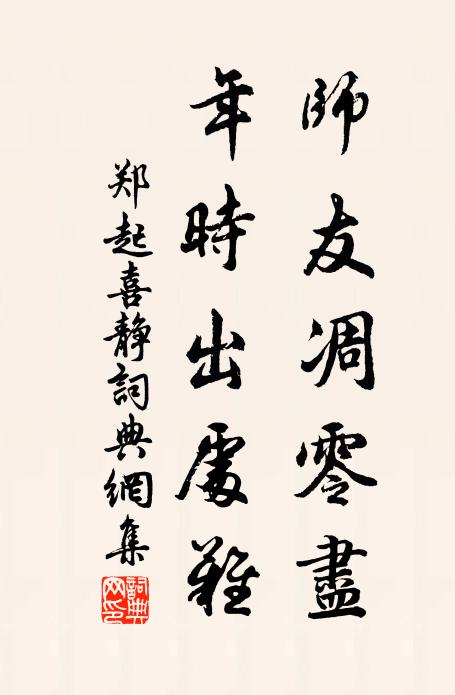 師友凋零盡
年時出處難
郑起喜静詞典網集
詞典網印